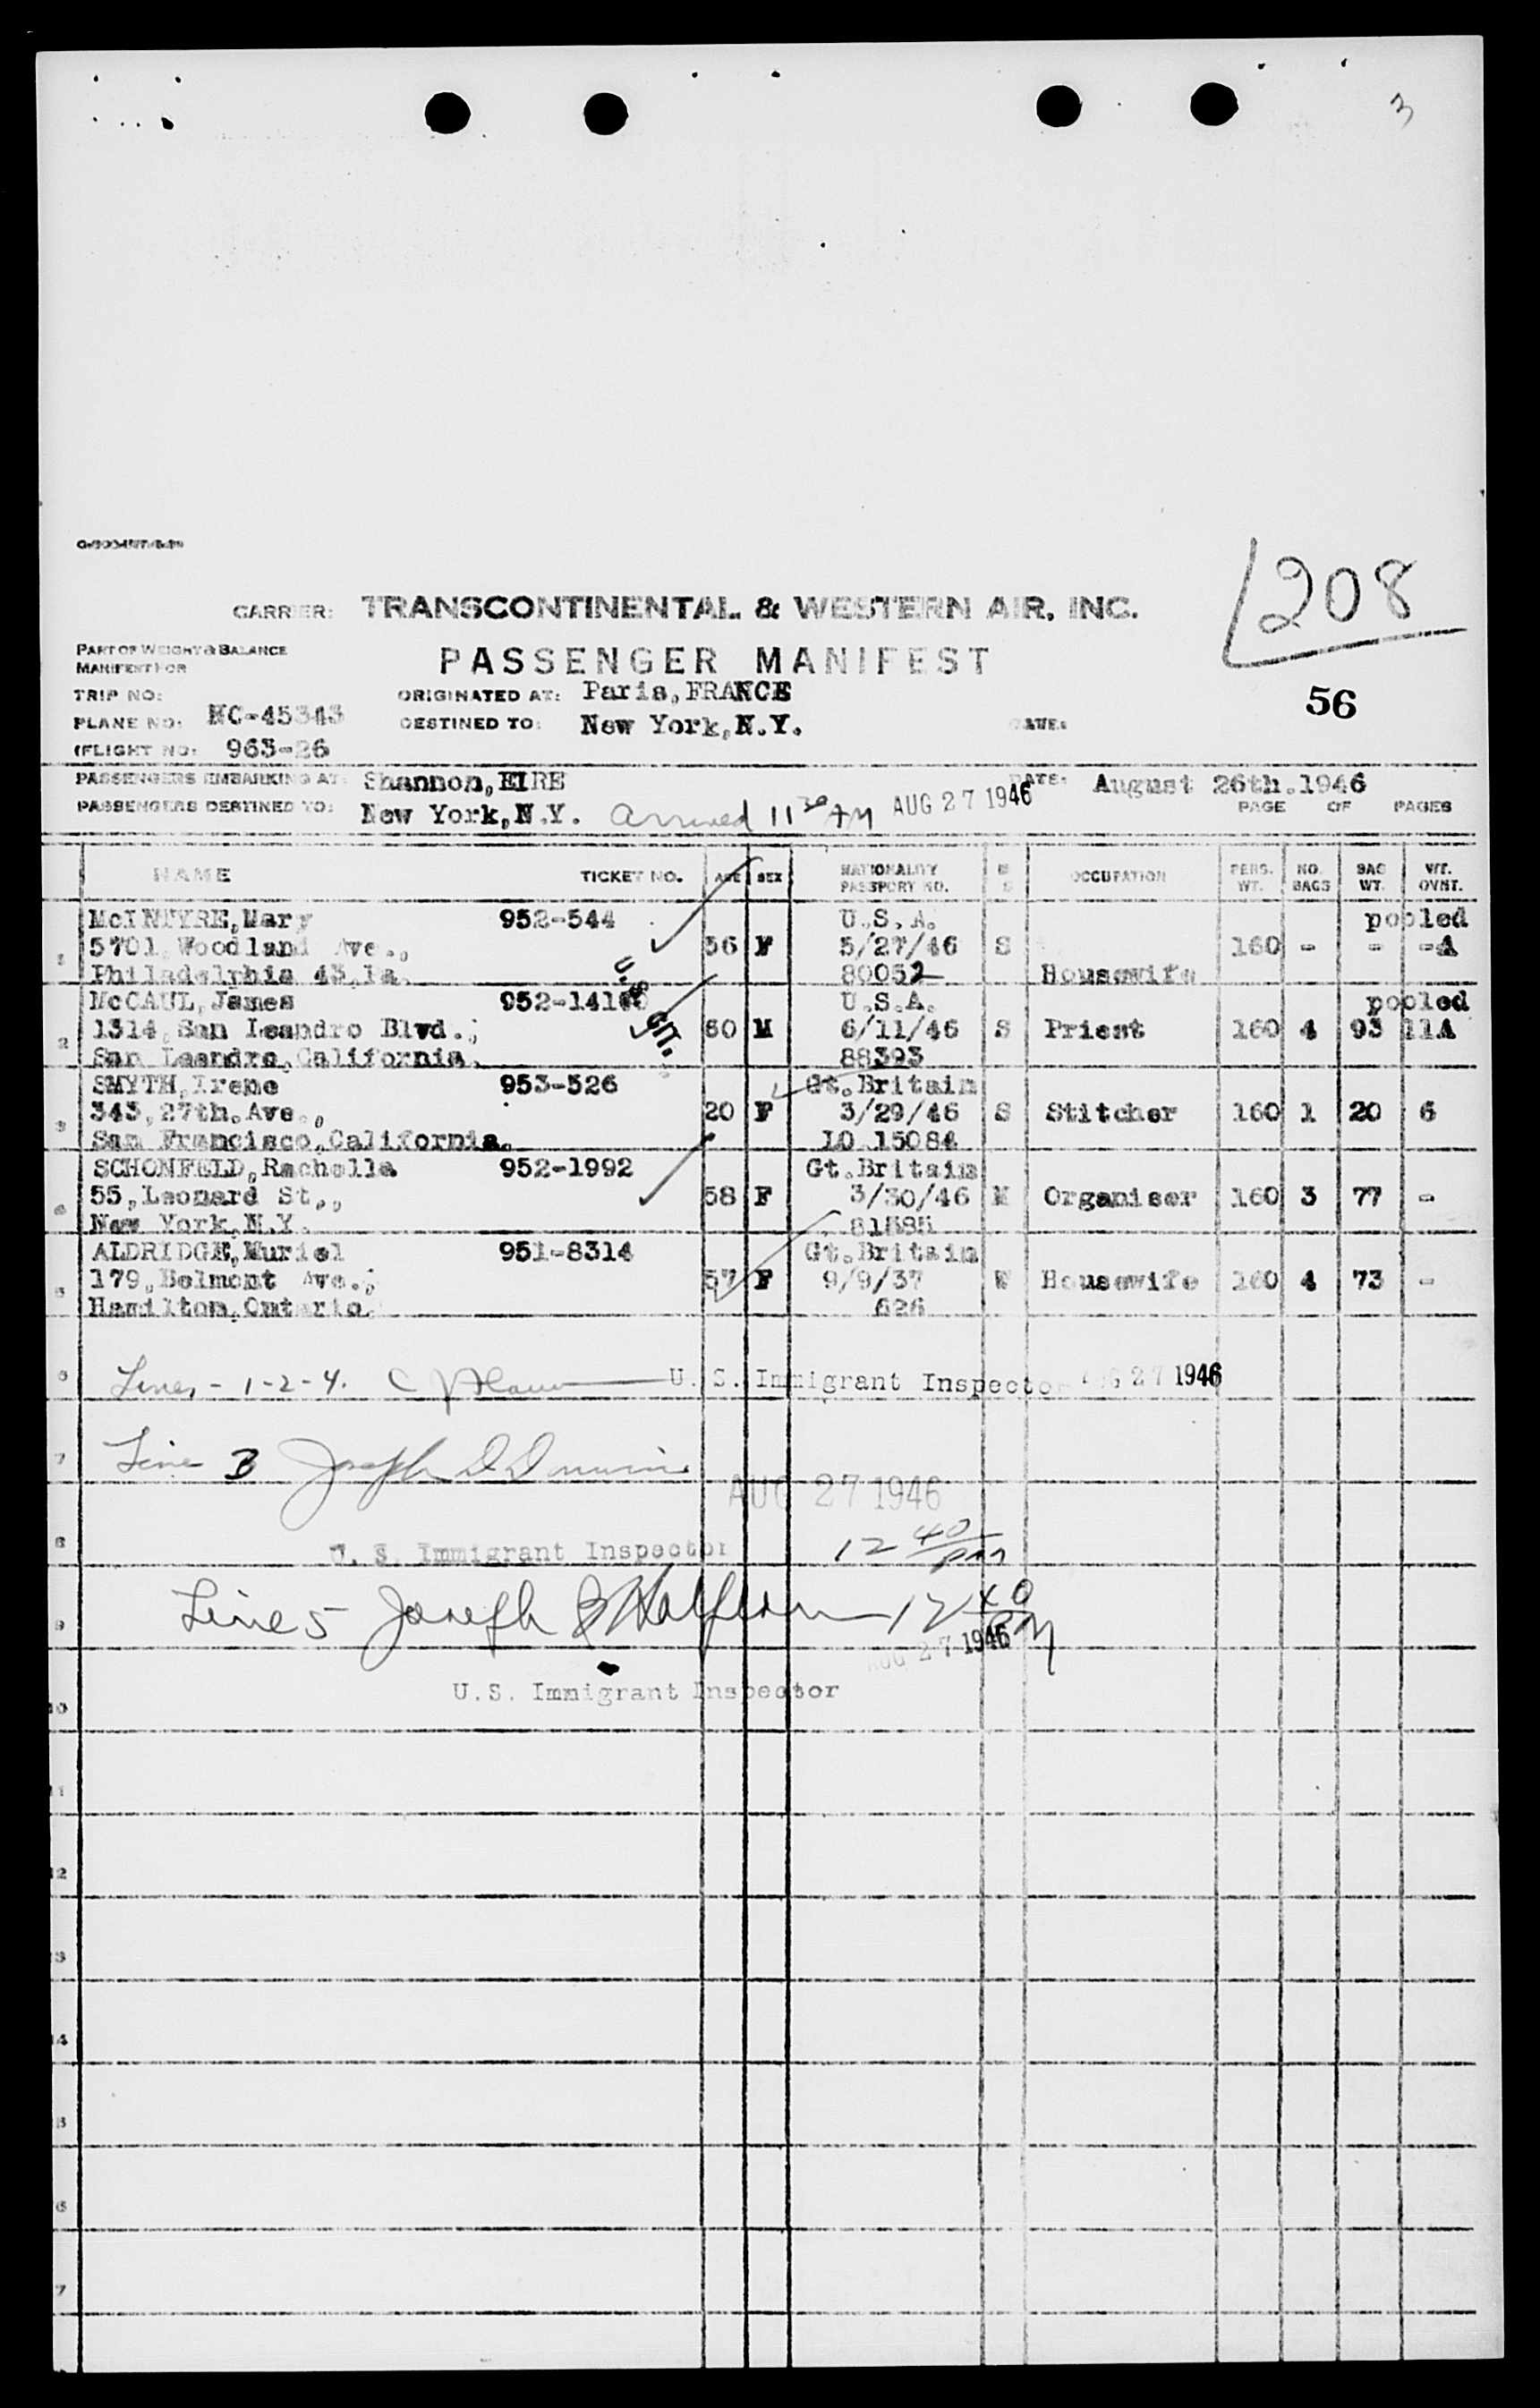 3
1208
CARRIER: TRANSCONTINENTAL & WESTERN AIR, INC.
PART OF WEIGHT & BALANCE
MANIFEST FOR
PASSENGER MANIFEST
TRIP NO: ORIGINATED AT: Paris, FRANCE
56
PLANE NO: NC-45343 DESTINED TO: New York, N.Y.
(FLIGHT NO: 963-26
PASSENGERS EMBARKING AT: Shannon, EIRE DATE: August 26th. 1946
PASSENGERS DESTINED TO: New York, N.Y. Arrived 11 30 AM AUG 27 1946 PAGE OF PAGES
NAME TICKET NO. AGE SEX NATIONALITY PASSPORT NO. M S OCCUPATION PERS. WT. NO. BAGS BAG WT. WT. OVNT.
McINTYRE, Mary 952-544 U.S.A. pooled
1 5701, Woodland Ave., 56 F 5/27/46 S 160 - - -A
Philadelphia 43, Pa. 80052 Housewife
U.S. CIT.
McCAUL, James 952-1410 U.S.A. pooled
2 1314, San Leandro Blvd., 60 M 6/11/46 S Priest 160 4 93 11A
San Leandro, California. 88393
SMYTH, Irene 953-526 Gt. Britain
3 343, 27th. Ave., 20 F 3/29/46 S Stitcher 160 1 20 6
San Francisco, California. 10 15084
SCHONFELD, Rachelle 952-1992 Gt. Britain
4 55, Leonard St., 58 F 3/30/46 M Organiser 160 3 77 -
New York, N.Y. 81585
ALDRIDGE, Muriel 951-8314 Gt. Britain
5 179, Belmont Ave., 57 F 9/9/37 W Housewife 160 4 73 -
Hamilton, Ontario. 626
6 Lines - 1-2-4. U. S. Immigrant Inspector AUG 27 1946
7 Line 3 Joseph D
AUG 27 1946
8 U. S. Immigrant Inspector 12 40 pm
9 Line 5 Joseph 12 40 PM
AUG 27 1946
10 U.S. Immigrant Inspector
11
12
13
14
15
16
17